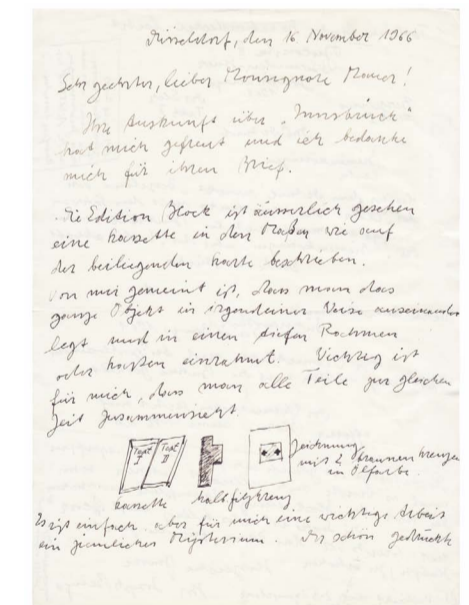 Düsseldorf, den 16 November 1966
Sehr geehrter, lieber Monsignore Mauer!
Ihre Auskunft über "Innsbruck"
hat mich gefreut und ich bedanke
mich für ihren Brief.
Die Edition Block ist äusserlich gesehen
eine Kassette in den Maßen wie auf
der beiliegenden Karte beschrieben.
Von mir gemeint ist, dass man das
ganze Objekt in irgendeiner Weise auseinander
legt und in einen tiefen Rahmen
oder Kasten einrahmt. Wichtig ist
für mich, dass man alle Teile zur gleichen
Zeit zusammensieht
Text I Text II
Zeichnung
mit 2 braunen Kreuzen
in Ölfarbe.
Kassette halbfilzkreuz
Es ist einfach aber für mich eine wichtige Arbeit
ein ziemliches Mysterium. Der schon gedruckte